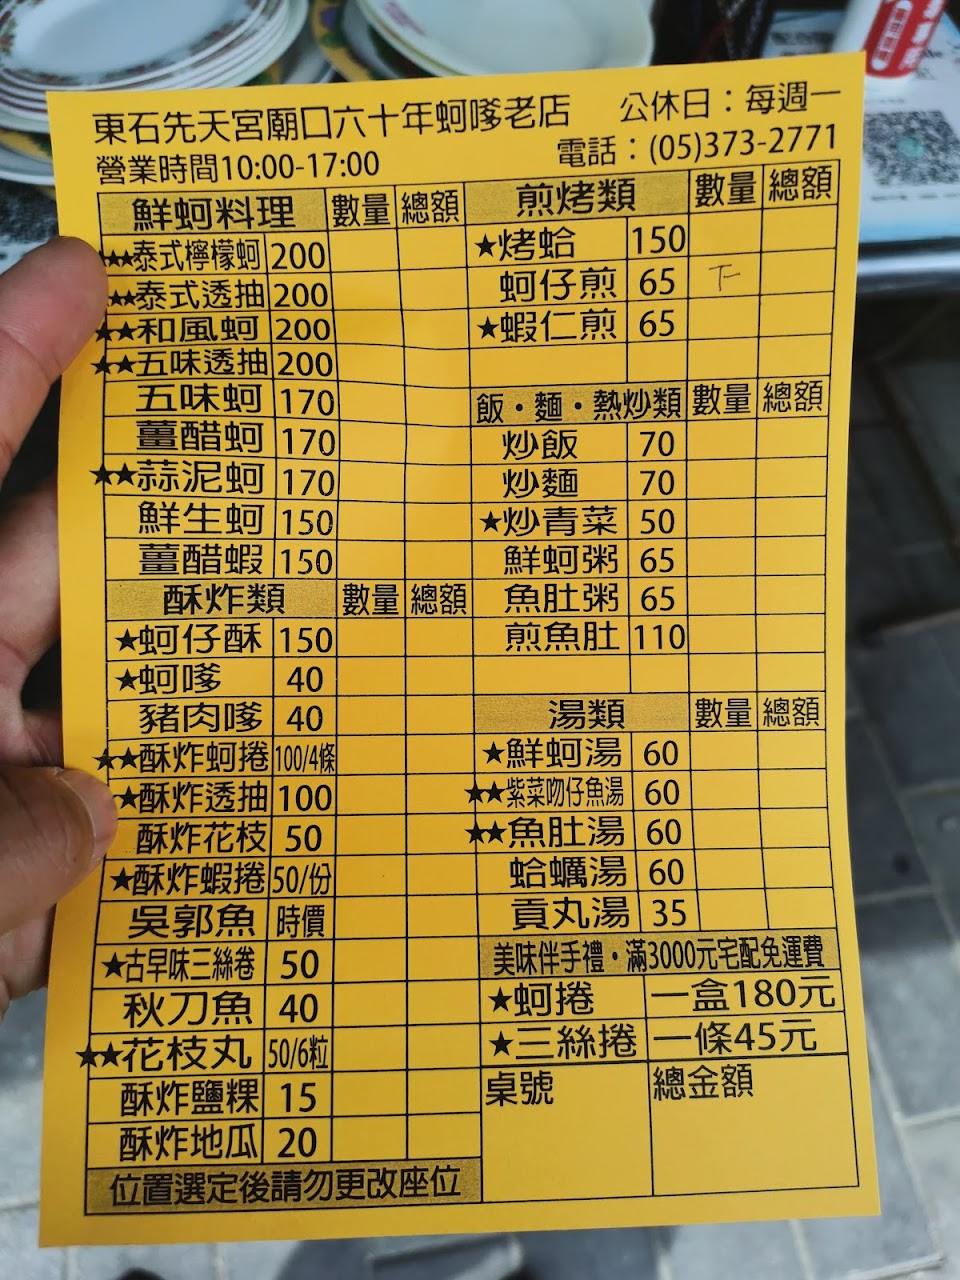 東石先天宮廟口六十年蚵嗲老店 公休日：每週一
營業時間10:00-17:00 電話：(05)373-2771
鮮蚵料理 數量 總額
★★泰式檸檬蚵 200
★★泰式透抽 200
★★和風蚵 200
★★五味透抽 200
五味蚵 170
薑醋蚵 170
★★蒜泥蚵 170
鮮生蚵 150
薑醋蝦 150
酥炸類 數量 總額
★蚵仔酥 150
★蚵嗲 40
豬肉嗲 40
★★酥炸蚵捲 100/4條
★酥炸透抽 100
酥炸花枝 50
★酥炸蝦捲 50/份
吳郭魚 時價
★古早味三絲卷 50
秋刀魚 40
★★花枝丸 50/6粒
酥炸鹽粿 15
酥炸地瓜 20
位置選定後請勿更改座位
煎烤類 數量 總額
★烤蛤 150
蚵仔煎 65
★蝦仁煎 65
飯·麵·熱炒類 數量 總額
炒飯 70
炒麵 70
★炒青菜 50
鮮蚵粥 65
魚肚粥 65
煎魚肚 110
湯類 數量 總額
★鮮蚵湯 60
★★紫菜吻仔魚湯 60
★★魚肚湯 60
蛤蠣湯 60
貢丸湯 35
美味伴手禮·滿3000元宅配免運費
★蚵捲 一盒180元
★三絲捲 一條45元
桌號 總金額